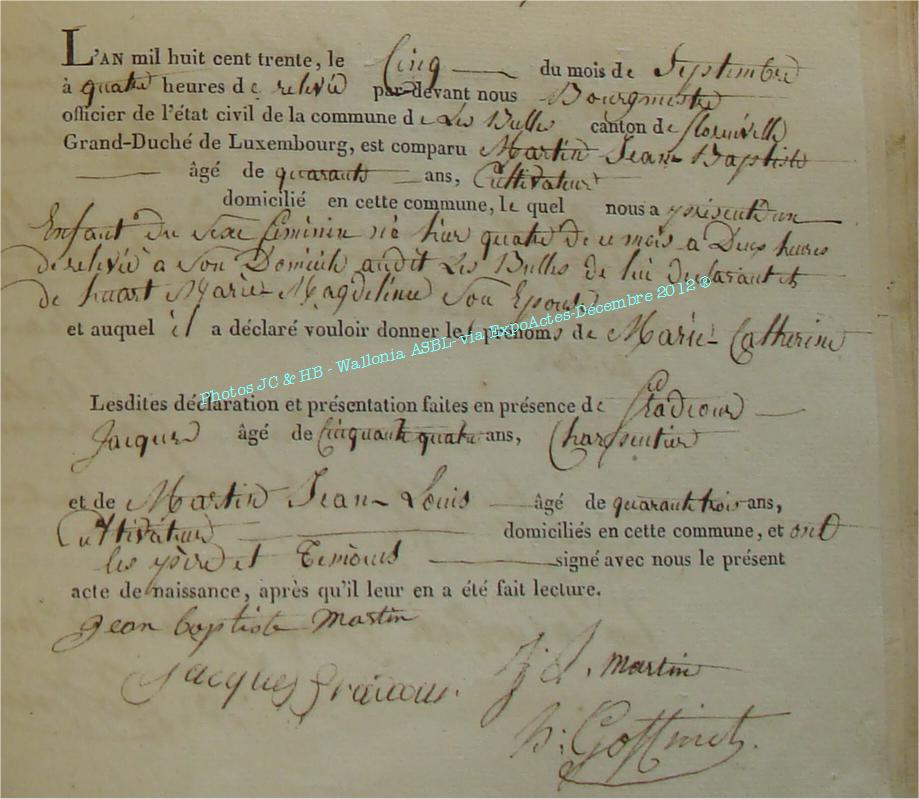 L'AN mil huit cent trente, le Cinq du mois de Septembre
à quatre heures de relevée par-devant nous Bourgmestre
officier de l'état civil de la commune de Les Bulles canton de florenville
Grand-Duché de Luxembourg, est comparu Martin Jean-Baptiste
âgé de quarante ans, Cultivateur
domicilié en cette commune, le quel nous a présenté un
Enfant du Sexe féminin né hier quatre de ce mois a Deux heures
de relevée a Son Domicile audit Les Bulles de lui declarant et
de huart Marie-Magdelinne Son Epouse
et auquel il a déclaré vouloir donner les prénoms de Marie-Catherine
Photos JC & HB - Wallonia ASBL- via ExpoActes-Décembre 2012 ®
Lesdites déclaration et présentation faites en présence de Gradcour
Jacques âgé de Cinquante quatre ans, Charpentier
et de Martin Jean-Louis âgé de quarante trois ans,
Cultivateur domiciliés en cette commune, et ont
les père et Temoins signé avec nous le présent
acte de naissance, après qu'il leur en a été fait lecture.
Jean baptiste Martin
J. L. martin
Jacques
h: Goffinet.